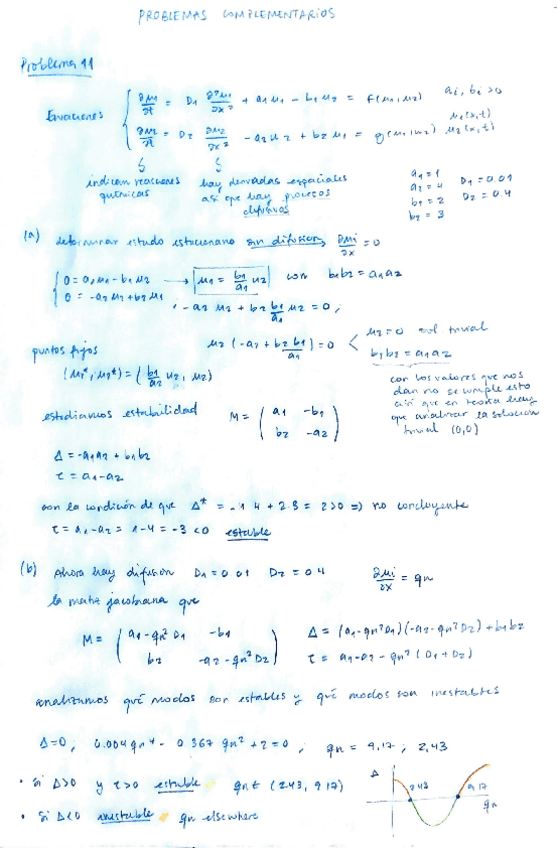 PROBLEMAS COMPLEMENTARIOS
Problema 11
Ecuaciones { ∂u1/∂t = D1 ∂²u1/∂x² + a1u1 - b1u2 = f(u1,u2) ai, bi >0
∂u2/∂t = D2 ∂u2/∂x² - a2u2 + b2u1 = g(u1,u2) u1(x,t) u2(x,t)
indican reacciones químicas
hay derivadas espaciales así que hay procesos difusivos
a1=1 D1=0.01
a2=4 D2=0.4
b1=2
b2=3
(a) determinar estado estacionario sin difusion, ∂ui/∂x = 0
{ 0 = a1u1 - b1u2 → u1 = b1/a1 u2 con b1b2 = a1a2
0 = -a2u2 + b2u1, -a2 u2 + b2 b1/a1 u2 = 0;
u2 (-a2 + b2b1/a1) = 0 < u2=0 sol trivial
b1b2 = a1a2
puntos fijos
(u1*, u2*) = (b1/a2 u2, u2)
con los valores que nos
dan no se cumple esto
así que en teoría hay
que analizar la solución
trivial (0,0)
estudiamos estabilidad M = ( a1 -b1
b2 -a2 )
Δ = -a1a2 + b1b2
τ = a1-a2
con la condición de que Δ* = -1·4 + 2·3 = 2>0 => no concluyente
τ = a1-a2 = 1-4 = -3 <0 estable
(b) Ahora hay difusion D1=0.01 D2=0.4 ∂ui/∂x = qn
la matriz jacobiana que
M = ( a1-qn²D1 -b1
b2 -a2-qn²D2 )
Δ = (a1-qn²D1)(-a2-qn²D2)+b1b2
τ = a1-a2 - qn²(D1+D2)
analizamos qué modos son estables y qué modos son inestables
Δ=0; 0.004qn⁴ - 0.367qn² + 2 = 0; qn = 9,17; 2,43
• Si Δ>0 y τ>0 estable qn ∈ (2.43, 9.17)
• Si Δ<0 inestable qn elsewhere
Δ
2.43
9.17
qn